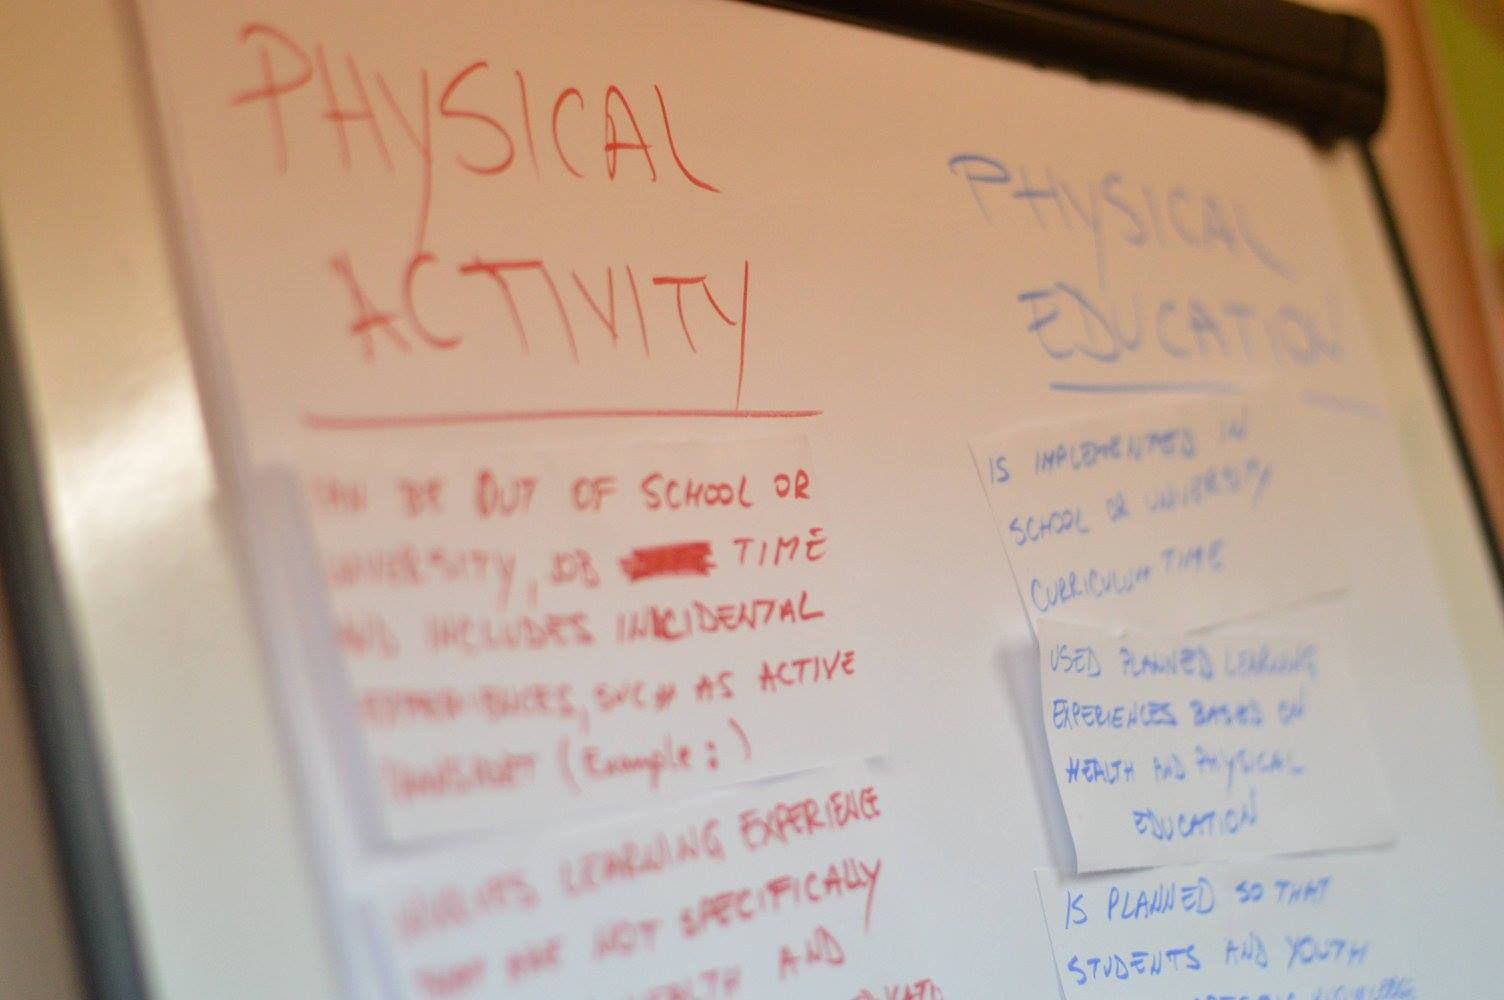 PHYSICAL
ACTIVITY
CAN BE OUT OF SCHOOL OR
UNIVERSITY, JOB TIME
AND INCLUDES INICIDENTAL
EXPERIENCES, SUCH AS ACTIVE
TRANSPORT (Example: )
LEARNING EXPERIENCE
THAT ARE NOT SPECIFICALLY
HEALTH AND
PHYSICAL
EDUCATION
IS IMPLEMENTED IN
SCHOOL OR UNIVERSITY
CURRICULUM TIME
USED PLANNED LEARNING
EXPERIENCES BASED ON
HEALTH AND PHYSICAL
EDUCATION
IS PLANNED SO THAT
STUDENTS AND YOUTH